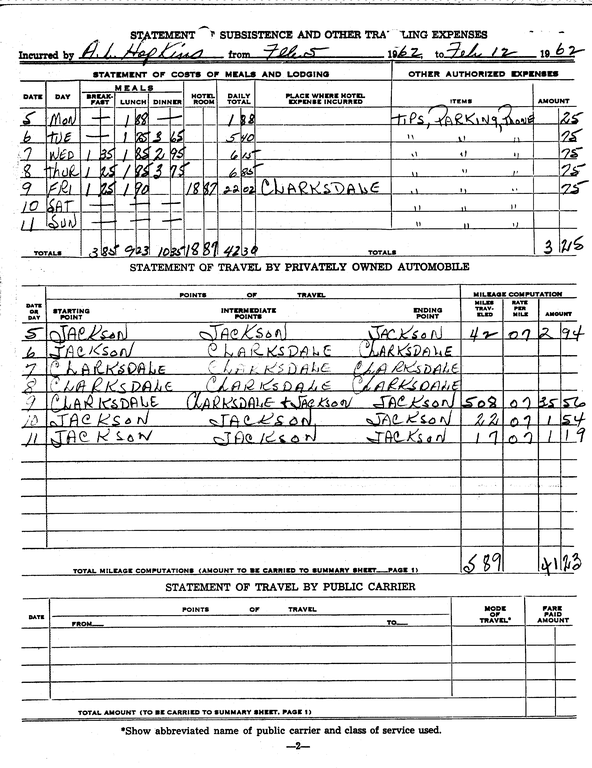 STATEMENT OF SUBSISTENCE AND OTHER TRAVELING EXPENSES
Incurred by A.L. Hopkins from Feb. 5 1962 to Feb 12 1962
STATEMENT OF COSTS OF MEALS AND LODGING OTHER AUTHORIZED EXPENSES
DATE DAY MEALS BREAKFAST LUNCH DINNER HOTEL ROOM DAILY TOTAL PLACE WHERE HOTEL EXPENSE INCURRED ITEMS AMOUNT
5 MON — 1 88 — 1 88 TIPS, PARKING, PHONE 25
6 TUE — 1 75 3 65 5 40 " " " 75
7 WED 1 35 1 85 2 95 6 15 " " " 75
8 THUR 1 25 1 85 3 75 6 85 " " " 75
9 FRI 1 25 1 90 18 87 22 02 CLARKSDALE " " " 75
10 SAT — — — " " "
11 SUN — — — " " "
TOTALS 3 85 9 23 10 35 18 87 42 30 TOTALS 3 25
STATEMENT OF TRAVEL BY PRIVATELY OWNED AUTOMOBILE
DATE OR DAY POINTS OF TRAVEL MILEAGE COMPUTATION
STARTING POINT INTERMEDIATE POINTS ENDING POINT MILES TRAVELED RATE PER MILE AMOUNT
5 JACKSON JACKSON JACKSON 42 07 2 94
6 JACKSON CLARKSDALE CLARKSDALE
7 CLARKSDALE CLARKSDALE CLARKSDALE
8 CLARKSDALE CLARKSDALE CLARKSDALE
9 CLARKSDALE CLARKSDALE + JACKSON JACKSON 508 07 35 56
10 JACKSON JACKSON JACKSON 22 07 1 54
11 JACKSON JACKSON JACKSON 17 07 1 19
TOTAL MILEAGE COMPUTATIONS (AMOUNT TO BE CARRIED TO SUMMARY SHEET PAGE 1) 589 41 23
STATEMENT OF TRAVEL BY PUBLIC CARRIER
DATE POINTS OF TRAVEL MODE OF TRAVEL* FARE PAID AMOUNT
FROM TO
TOTAL AMOUNT (TO BE CARRIED TO SUMMARY SHEET. PAGE 1)
*Show abbreviated name of public carrier and class of service used.
—2—